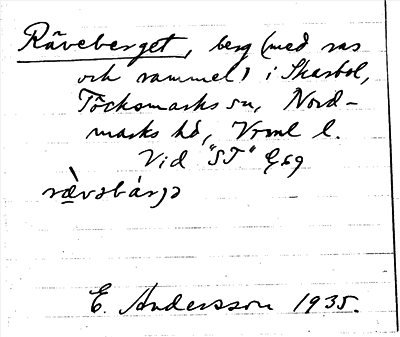 Räveberget, berg (med ras
och rammel) i Skarbol,
Töcksmarks sn, Nord-
marks hd, Vrml l.
Vid "ST" G 69
E. Andersson 1935.